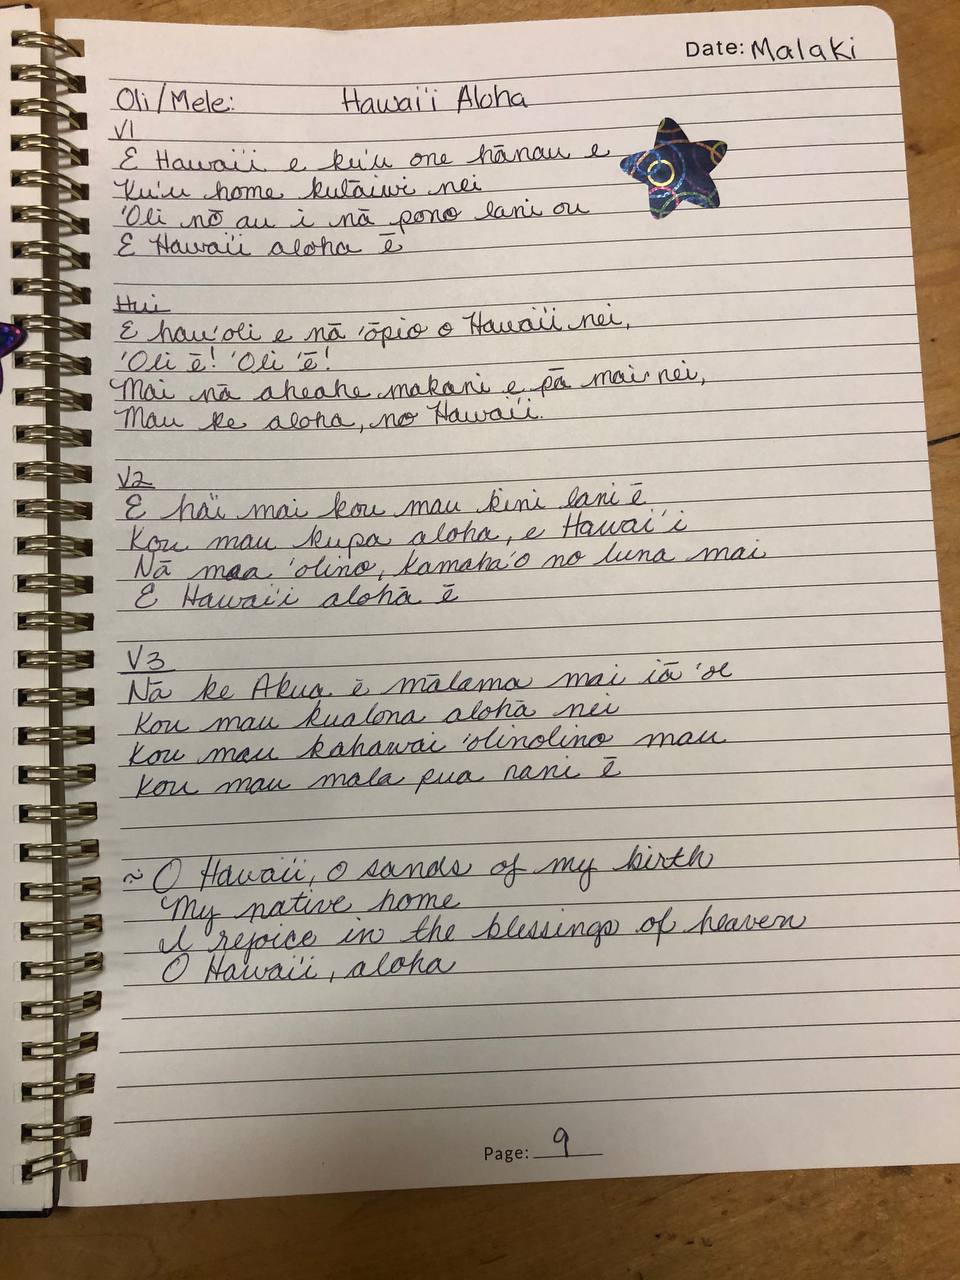 Date: Malaki
Oli/Mele: Hawai'i Aloha
V1
E Hawai'i e ku'u one hānau e
Ku'u home kulāiwi nei
'Oli nō au i nā pono lani ou
E Hawai'i aloha ē
Hui
E hau'oli e nā 'ōpio o Hawai'i nei,
'Oli ē! 'Oli 'ē!
Mai nā aheahe makani e pā mai nei,
Mau ke aloha, no Hawai'i.
V2
E ha'i mai kou mau kini lani ē
Kou mau kupa aloha, e Hawai'i
Nā maa 'olino, kamaha'o no luna mai
E Hawai'i alohā ē
V3
Nā ke Akua ē mālama mai iā 'oe
Kou mau kualona alohā nei
Kou mau kahawai 'olinolino mau
Kou mau mala pua nani ē
~ O Hawai'i, O sands of my birth
My native home
I rejoice in the blessings of heaven
O Hawai'i, aloha
Page: 9